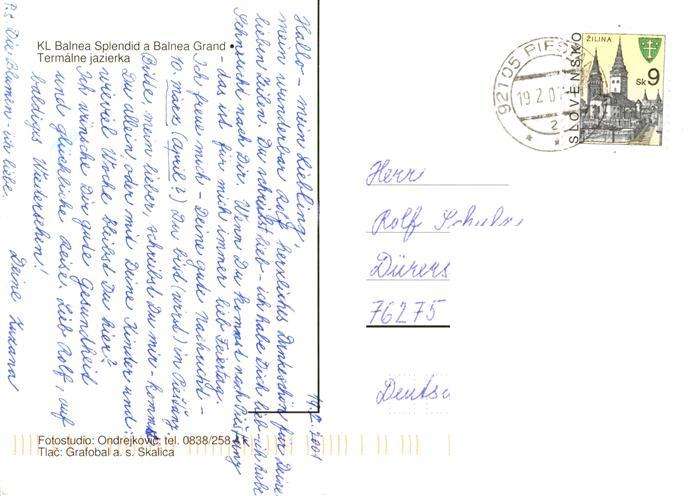 KL Balnea Splendid a Balnea Grand •
Termálne jazierka
14.2.2001
Hallo – mein Liebling,
mein wunderbar Rolf, herzliches Dankeschön für Deine
lieben Zeilen. Du schreibst lieb – ich habe Dich lieb – ich habe
Sehnsucht nach Dir. Wenn Du kommst nach Piešťany
– das ist für mich immer lieb Feiertag.
Ich freue mich – Deine gute Nachricht –
10. März (April?) Du bist (wirst) in Piešťany.
Bitte, mein lieber, schreibst Du mir – kommst
Du allein oder mit Deine Kinder und:
wieviel Woche bleibst Du hier?
Ich wünsche Dir gute Gesundheit
und glückliche Reise, Lieb Rolf, auf
baldiges Wiedersehn!
Deine Zuzana
P.S. Die Blumen – ich liebe.
Fotostudio: Ondrejkovič, tel. 0838/258
Tlač: Grafobal a. s. Skalica
921 05 PIEŠ
19.2.01
2
ŽILINA
SLOVENSKO
Sk 9
Herr
Rolf
Dürers
76275
Deuts